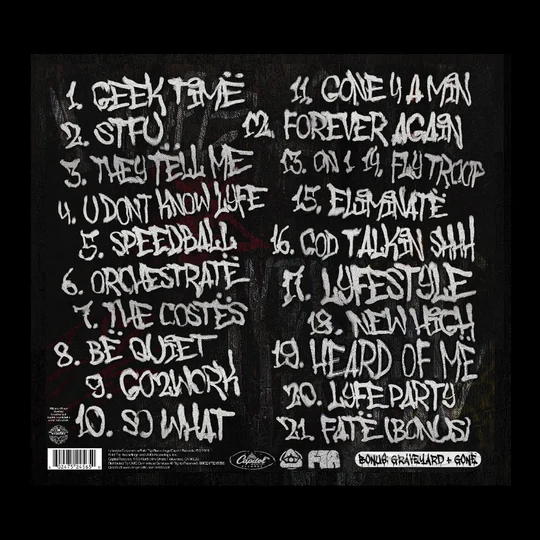 1. GEEK TIMË
2. STFU
3. THEY TËLL ME
4. U DONT KNOW LYFE
5. SPEEDBALL
6. ORCHESTRATË
7. THE COSTËS
8. BË QUIET
9. GO2WORK
10. SO WHAT
11. GONE 4 A MIN
12. FOREVER AGAIN
13. ON 1 14. FLY TROOP
15. ELIMINATË
16. GOD TALKIN SHHH
17. LYFESTYLE
18. NEW HIGH
19. HEARD OF MË
20. LYFE PARTY
21. FATË (BONUS)
Capitol
BONUS: GRAVEYARD + GONE